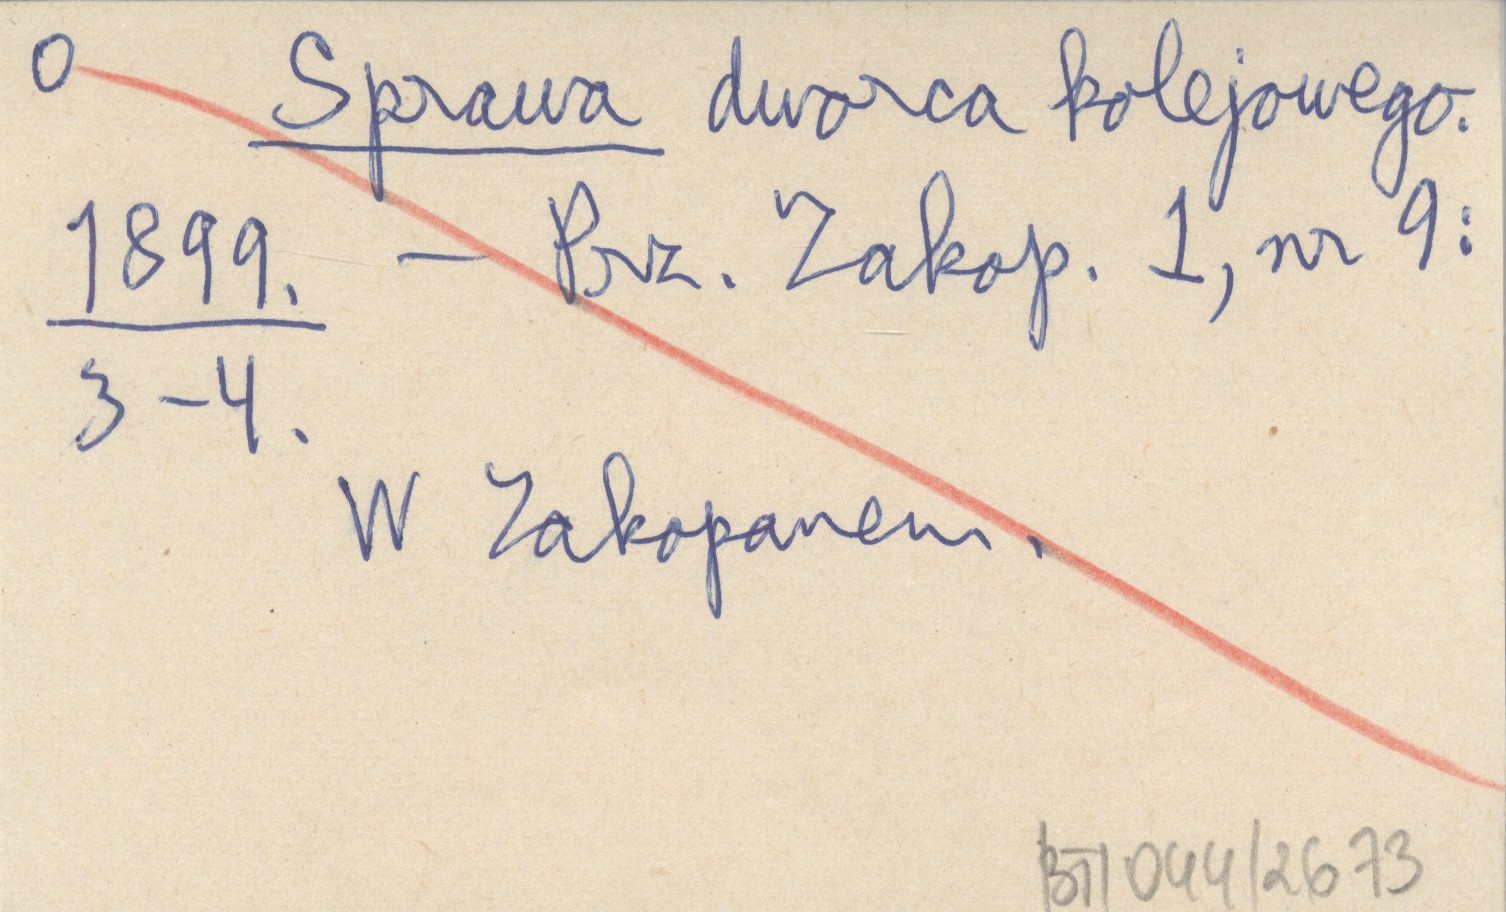 O Sprawa dworca kolejowego.
1899. — Prz. Zakop. 1, nr 9:
3-4.
W Zakopanem.
BT/044/2673